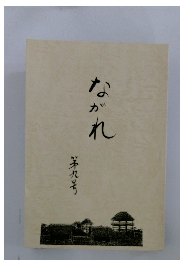 ながれ
第九号